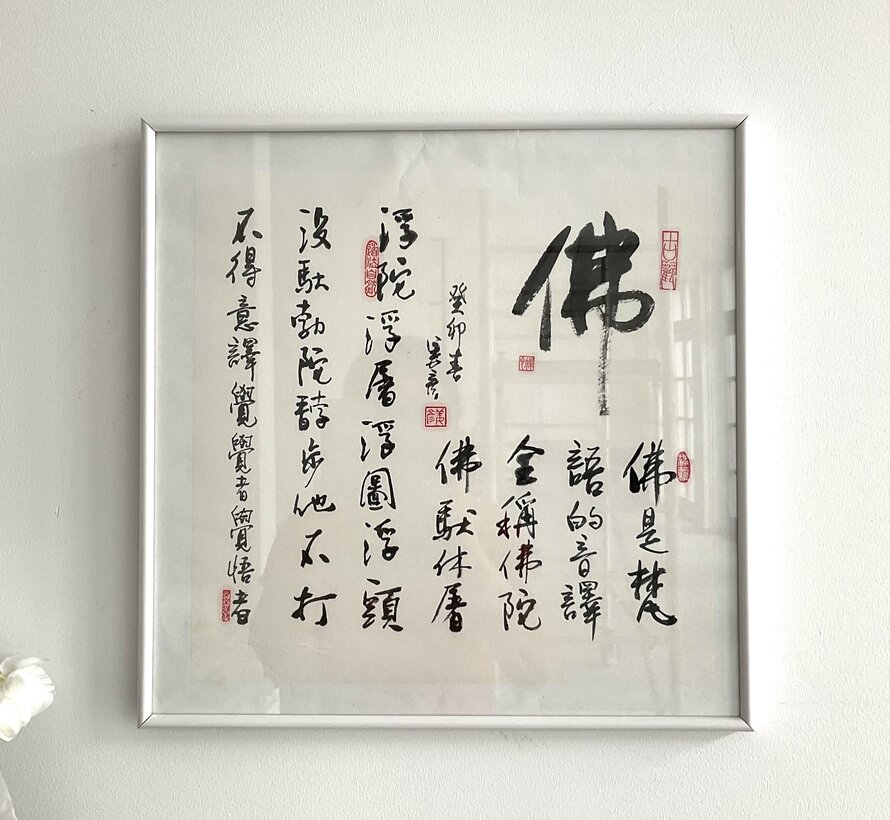 佛
佛是梵
語的音譯
全稱佛陀
佛馱休屠
浮陀浮屠浮圖浮頭
没馱勃陀馞步他不打
不得意譯覺覺者覺悟者
癸卯春